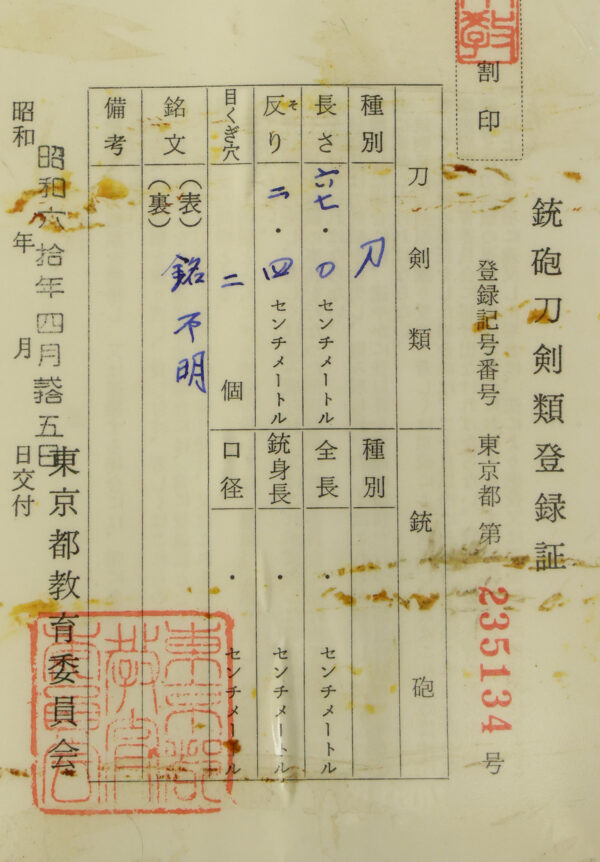 割印
銃砲刀剣類登録証
登録記号番号 東京都 第 235134 号
刀剣類
銃砲
種別 刀
種別
長さ 六七・〇 センチメートル
全長 ・ センチメートル
反り そ 二・四 センチメートル
銃身長 ・ センチメートル
目くぎ穴 二 個
口径 ・ センチメートル
銘文 (表) 銘不明
(裏)
備考
昭和六拾年四月拾五日
昭和 年 月 日交付
東京都教育委員会